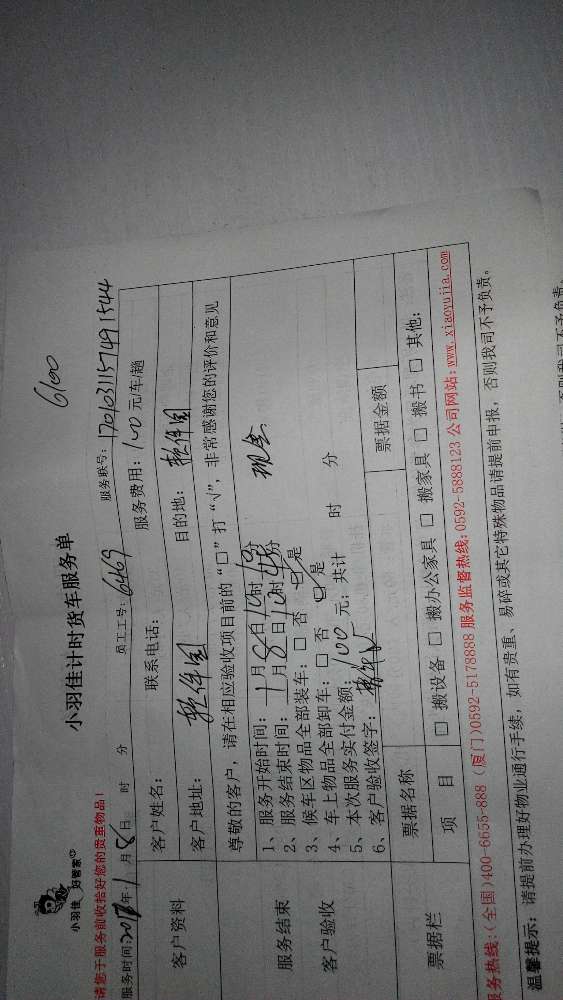 6100
小羽佳计时货车服务单
小羽佳 好管家
请您于服务前收拾好您的贵重物品!
服务时间: 2018年1月8日 时 分 员工工号: 6469 服务联号: 170103115749 1544
客户资料
客户姓名: 联系电话: 服务费用: 100 元/车趟
客户地址: 软件园 目的地: 软件园
服务结束
客户验收
尊敬的客户,请在相应验收项目前的“□”打“√”,非常感谢您的评价和意见
1、服务开始时间: 1月8日10时10分 现金
2、服务结束时间: 月8日10时45分
3、候车区物品全部装车: □ 否 □是
4、车上物品全部卸车: □ 否 □是
5、本次服务实付金额: 100 元; 共计 时 分
6、客户验收签字:
票据栏
票据名称 票据金额
项 目 □ 搬设备 □ 搬办公家具 □ 搬家具 □ 搬书 □ 其他:
服务热线:(全国)400-6655-888 (厦门)0592-5178888 服务监督热线:0592-5888123 公司网站:www.xiaoyujia.com
温馨提示: 请提前办理好物业通行手续, 如有贵重、易碎或其它特殊物品请提前申报, 否则我司不予负责。
否则我司不予负责